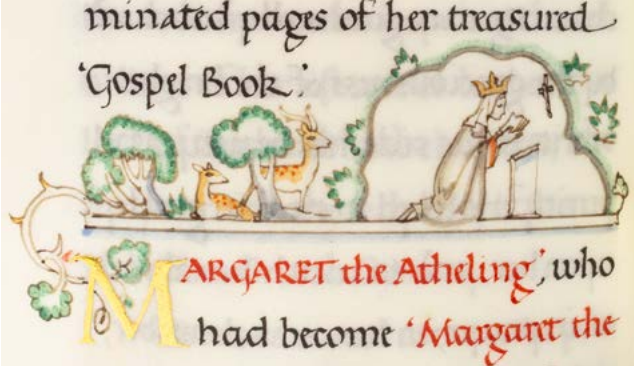 minated pages of her treasured
'Gospel Book.'
MARGARET the Atheling', who
had become 'Margaret the